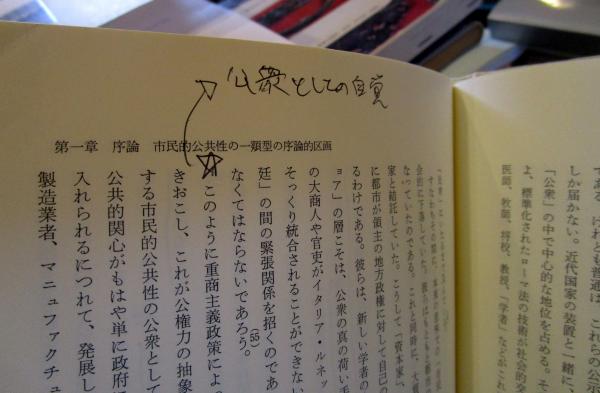 公衆としての自覚
第一章　序論　市民的公共性の一類型の序論的区画
である。けれども普通は、これらの公示
しか届かない。近代国家の装置と一緒に、
「公衆」の中で中心的な地位を占める。そ
よ、標準化されたローマ法の技術が社会的交
医師、牧師、将校、教授、「学者」などがこれ
会的に下落していた。彼らはもともと
なっていたのである。これと同時に、大
家と結託していた。こうして「資本家」、
に都市が領主の地方政権に対して自己の
るわけである。彼らは、新しい学者の
ョア」の層こそは、公衆の真の荷い手
の大商人や官吏がイタリア・ルネッ
そっくり統合されることができない
廷」の間の緊張関係を招くのであ
なくてはならないであろう。(55)
このように重商主義政策によ
きおこし、これが公権力の抽象
する市民的公共性の公衆として
公共的関心がもはや単に政府
入れられるにつれて、発展し
製造業者、マニュファクチュ